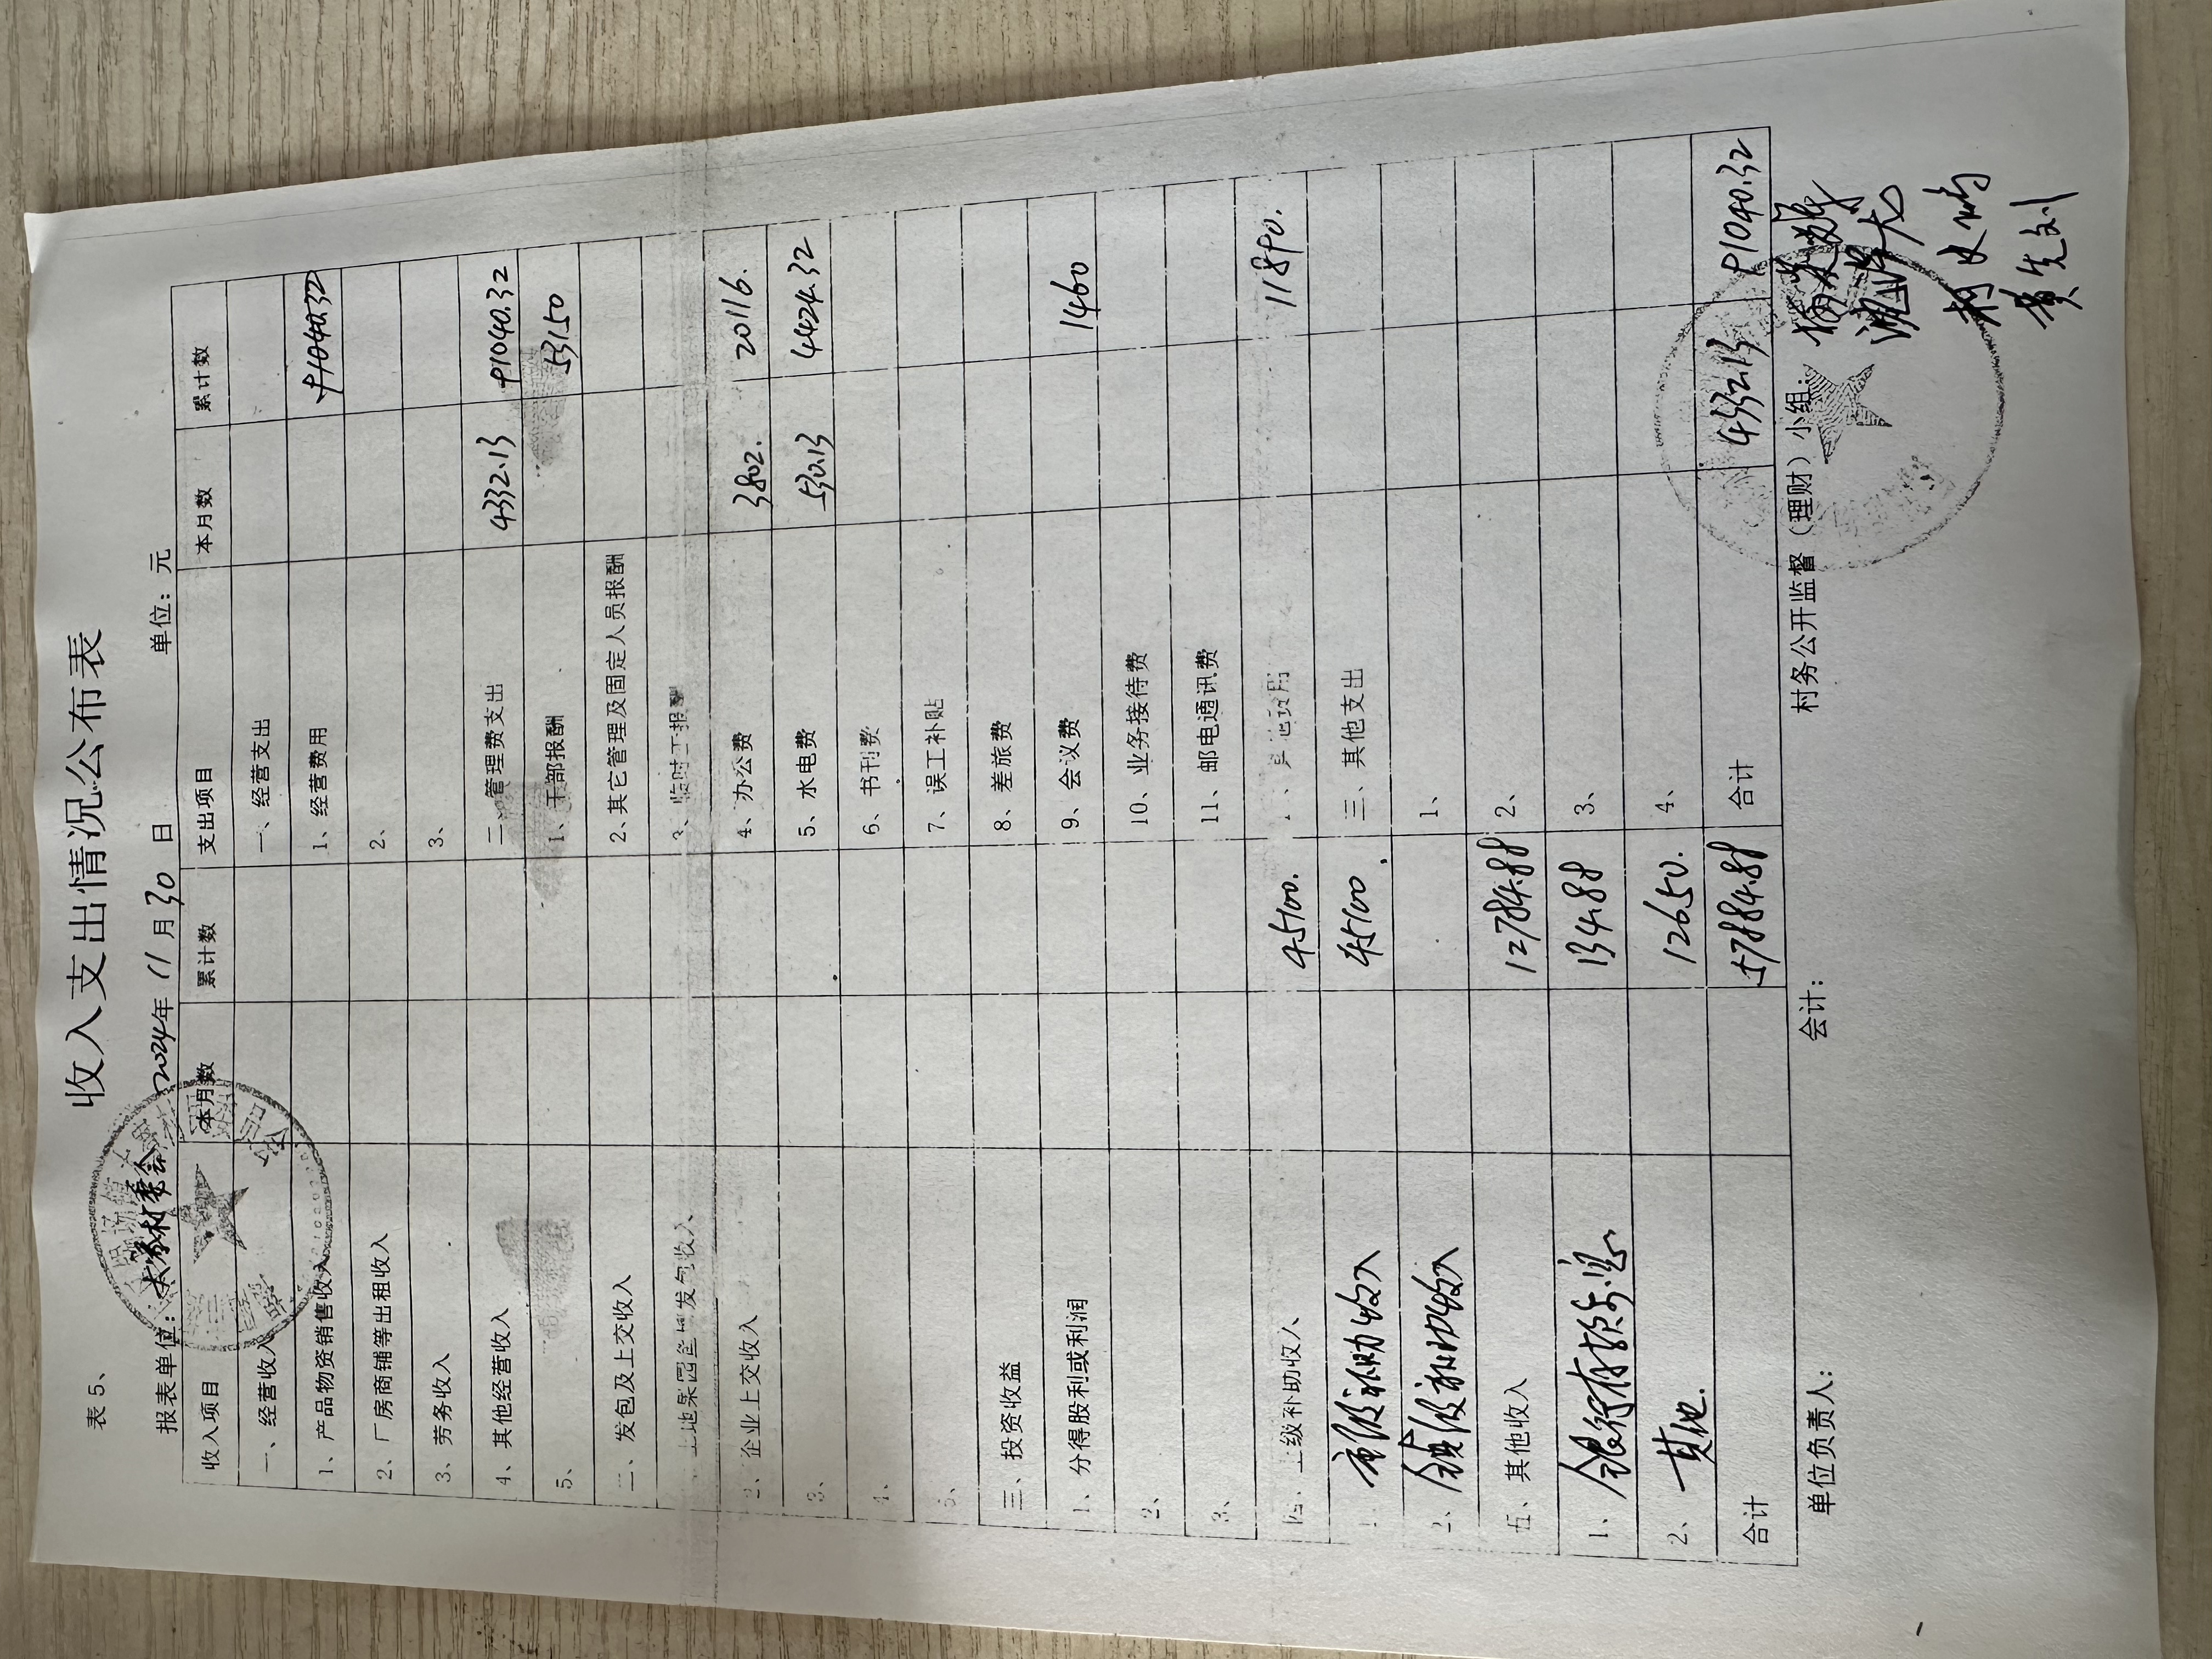 收入支出情况公布表
表5、
报表单位: 村委会 2024年11月30日 单位:元
收入项目 本月数 累计数 支出项目 本月数 累计数
一、经营收入 一、经营支出
1、产品物资销售收入 1、经营费用 91040.32
2、厂房商铺等出租收入 2、
3、劳务收入 3、
4、其他经营收入 二、管理费支出 4332.13 91040.32
5、 1、干部报酬 53150
二、发包及上交收入 2、其它管理及固定人员报酬
土地果园鱼塘发包收入 3、临时工报酬
2、企业上交收入 4、办公费 3802. 20116.
3、 5、水电费 530.13 4424.32
4、 6、书刊费
5、 7、误工补贴
三、投资收益 8、差旅费
1、分得股利或利润 9、会议费 1460
2、 10、业务接待费
3、 11、邮电通讯费
四、上级补助收入 45100. 其他费用 11890.
1、市级补助收入 45100 三、其他支出
2、镇级补助收入 1、
五、其他收入 12784.88 2、
1、银行存款利息 134.88 3、
2、其他. 12650. 4、
合计 57884.88 合计 4332.13 91040.32
单位负责人: 会计: 村务公开监督(理财)小组: